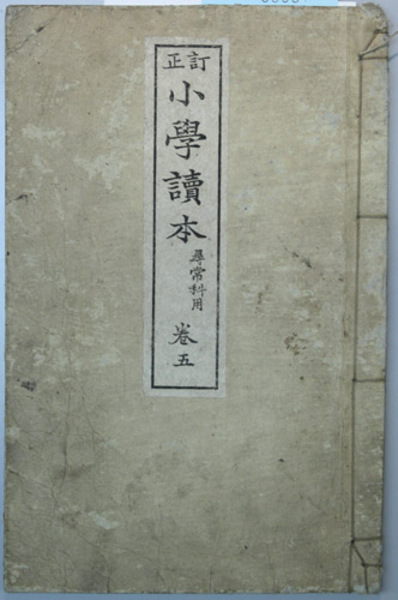 訂正
小學讀本
尋常科用
卷五